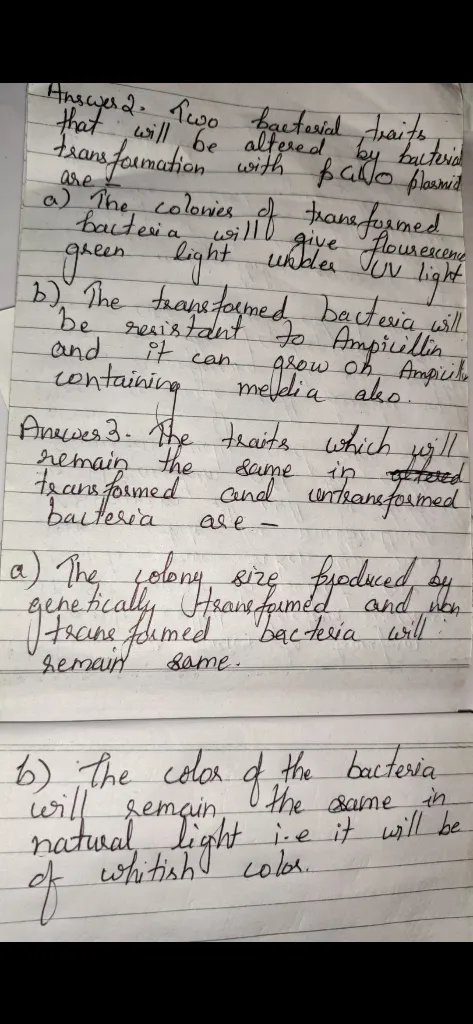 Answer 2. Two bacterial traits
that will be altered by bacterial
transformation with pGLO plasmid
are -
a) The colonies of transformed
bacteria will give flourescence
green light under UV light
b) The transformed bacteria will
be resistant to Ampicillin
and it can grow on Ampicillin
containing media also.
Answer 3. The traits which will
remain the same in altered
transformed and untransformed
bacteria are -
a) The colony size produced by
genetically transformed and non
transformed bacteria will
remain same.
b) The color of the bacteria
will remain the same in
natural light i.e it will be
of whitish color.